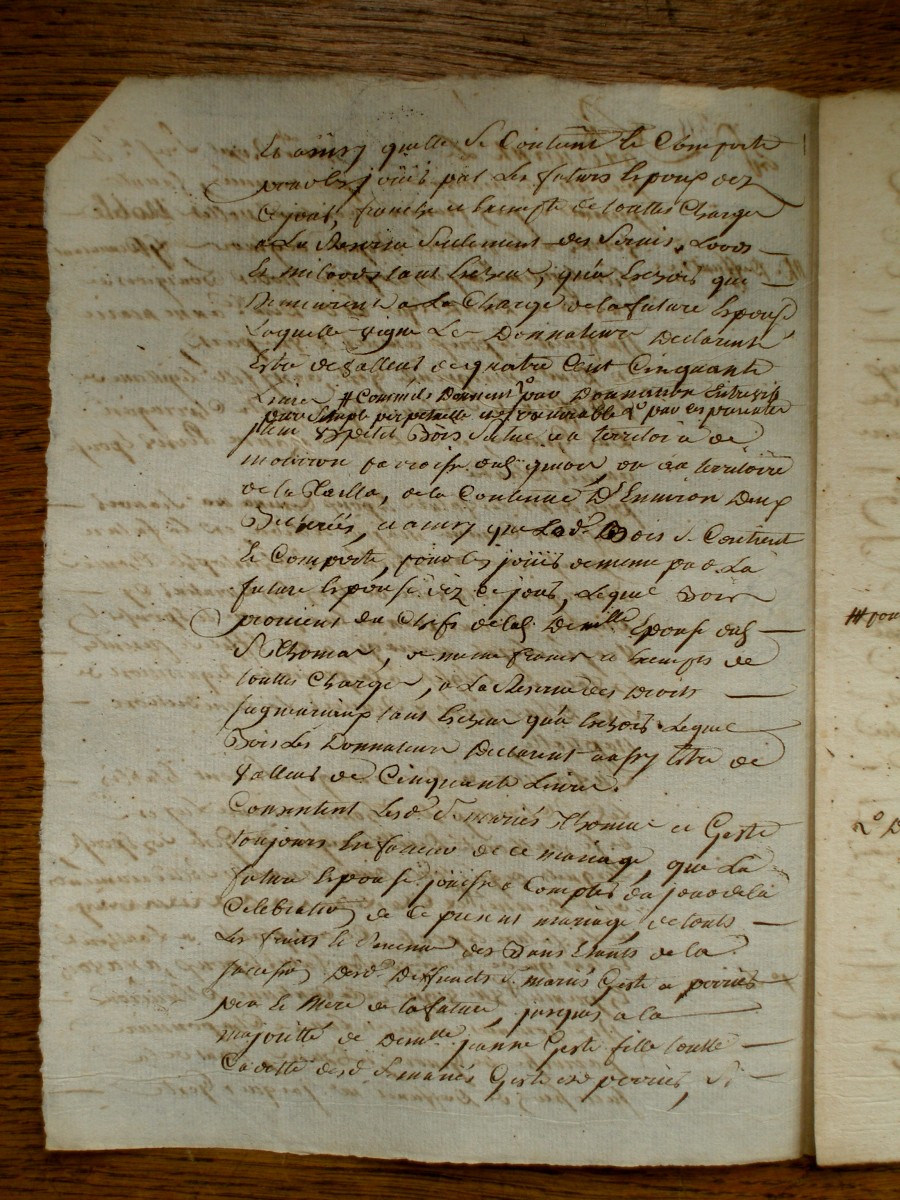 Et ainsy quelle se Contient et Comporte
pour les jouïs par les futurs Epoux dez
Ce jour, franche et Exempte de touttes Charges
a La Reserve Seulement des Servis, Loods
Et milloods tant Echeus, qu'a Echoir qui
Demeurent a La Charge de la future Epouse
Laquelle vigne Les Donnateurs Declarent
Estre de valleur de quatre Cent Cinquante
Livres # Comm'ils Donnent par Donnation Entrevifs
pure Simple perpetuelle et irrevocable 2° par
petit Bois Situé au territoire de
paroisse ou au territoire
de la de la Contenue D'Environ Deux
et ainsy que Led. Bois se Contient
Et Comporte, pour les jouïs de meme par La
future Epouse dez Ce jour, Lequel Bois
provient du Chefs de lad. Demlle Epouse dud.
Sr Thomas, de meme franc et Exempts de
touttes Charges, a La Reserve des Droits
Seigneuriaux tant Echeus qu'a Echoir Lequel
Bois Les Donnateurs Declarent aussy Estre de
Valleur de Cinquante Livres.
Consentent Lesd. Sr. mariés Thomas et Geste
toujours En faveur de Ce mariage, que La
future Epouse jouisse a Compter du jour de la
Celebration de Ce present mariage, de touts
Les fruits Et Revenus des Biens Etants de la
sucession Desd. Deffuncts Sr. mariés Geste et perrier
pere Et Mere de la future, jusques a la
majorité de Demlle jeanne Geste fille
Cadette desd. Sr mariés Geste et perrier, Si
# pour
2° D